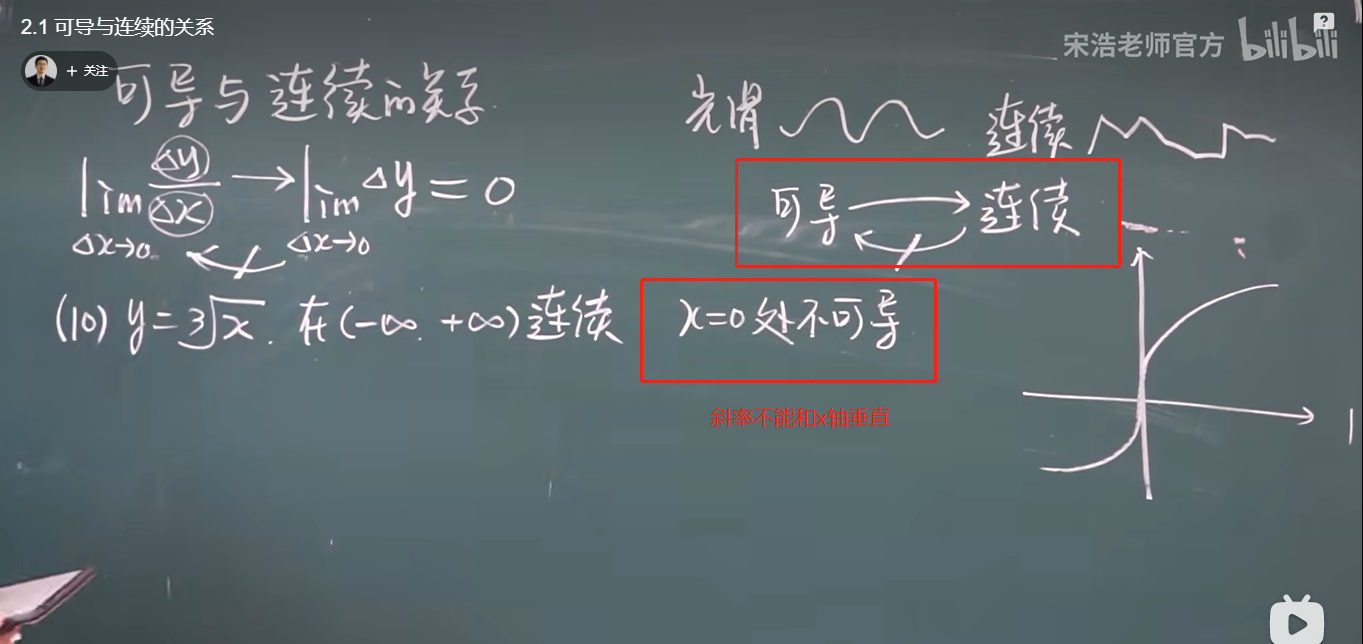 2.1 可导与连续的关系
宋浩老师官方 bilibili
?
+ 关注
可导与连续的关系
光滑 连续
lim Δy/Δx → lim Δy = 0
Δx→0 Δx→0
可导 连续
(10) y = 3√x. 在(-∞. +∞)连续 x=0处不可导
斜率不能和x轴垂直